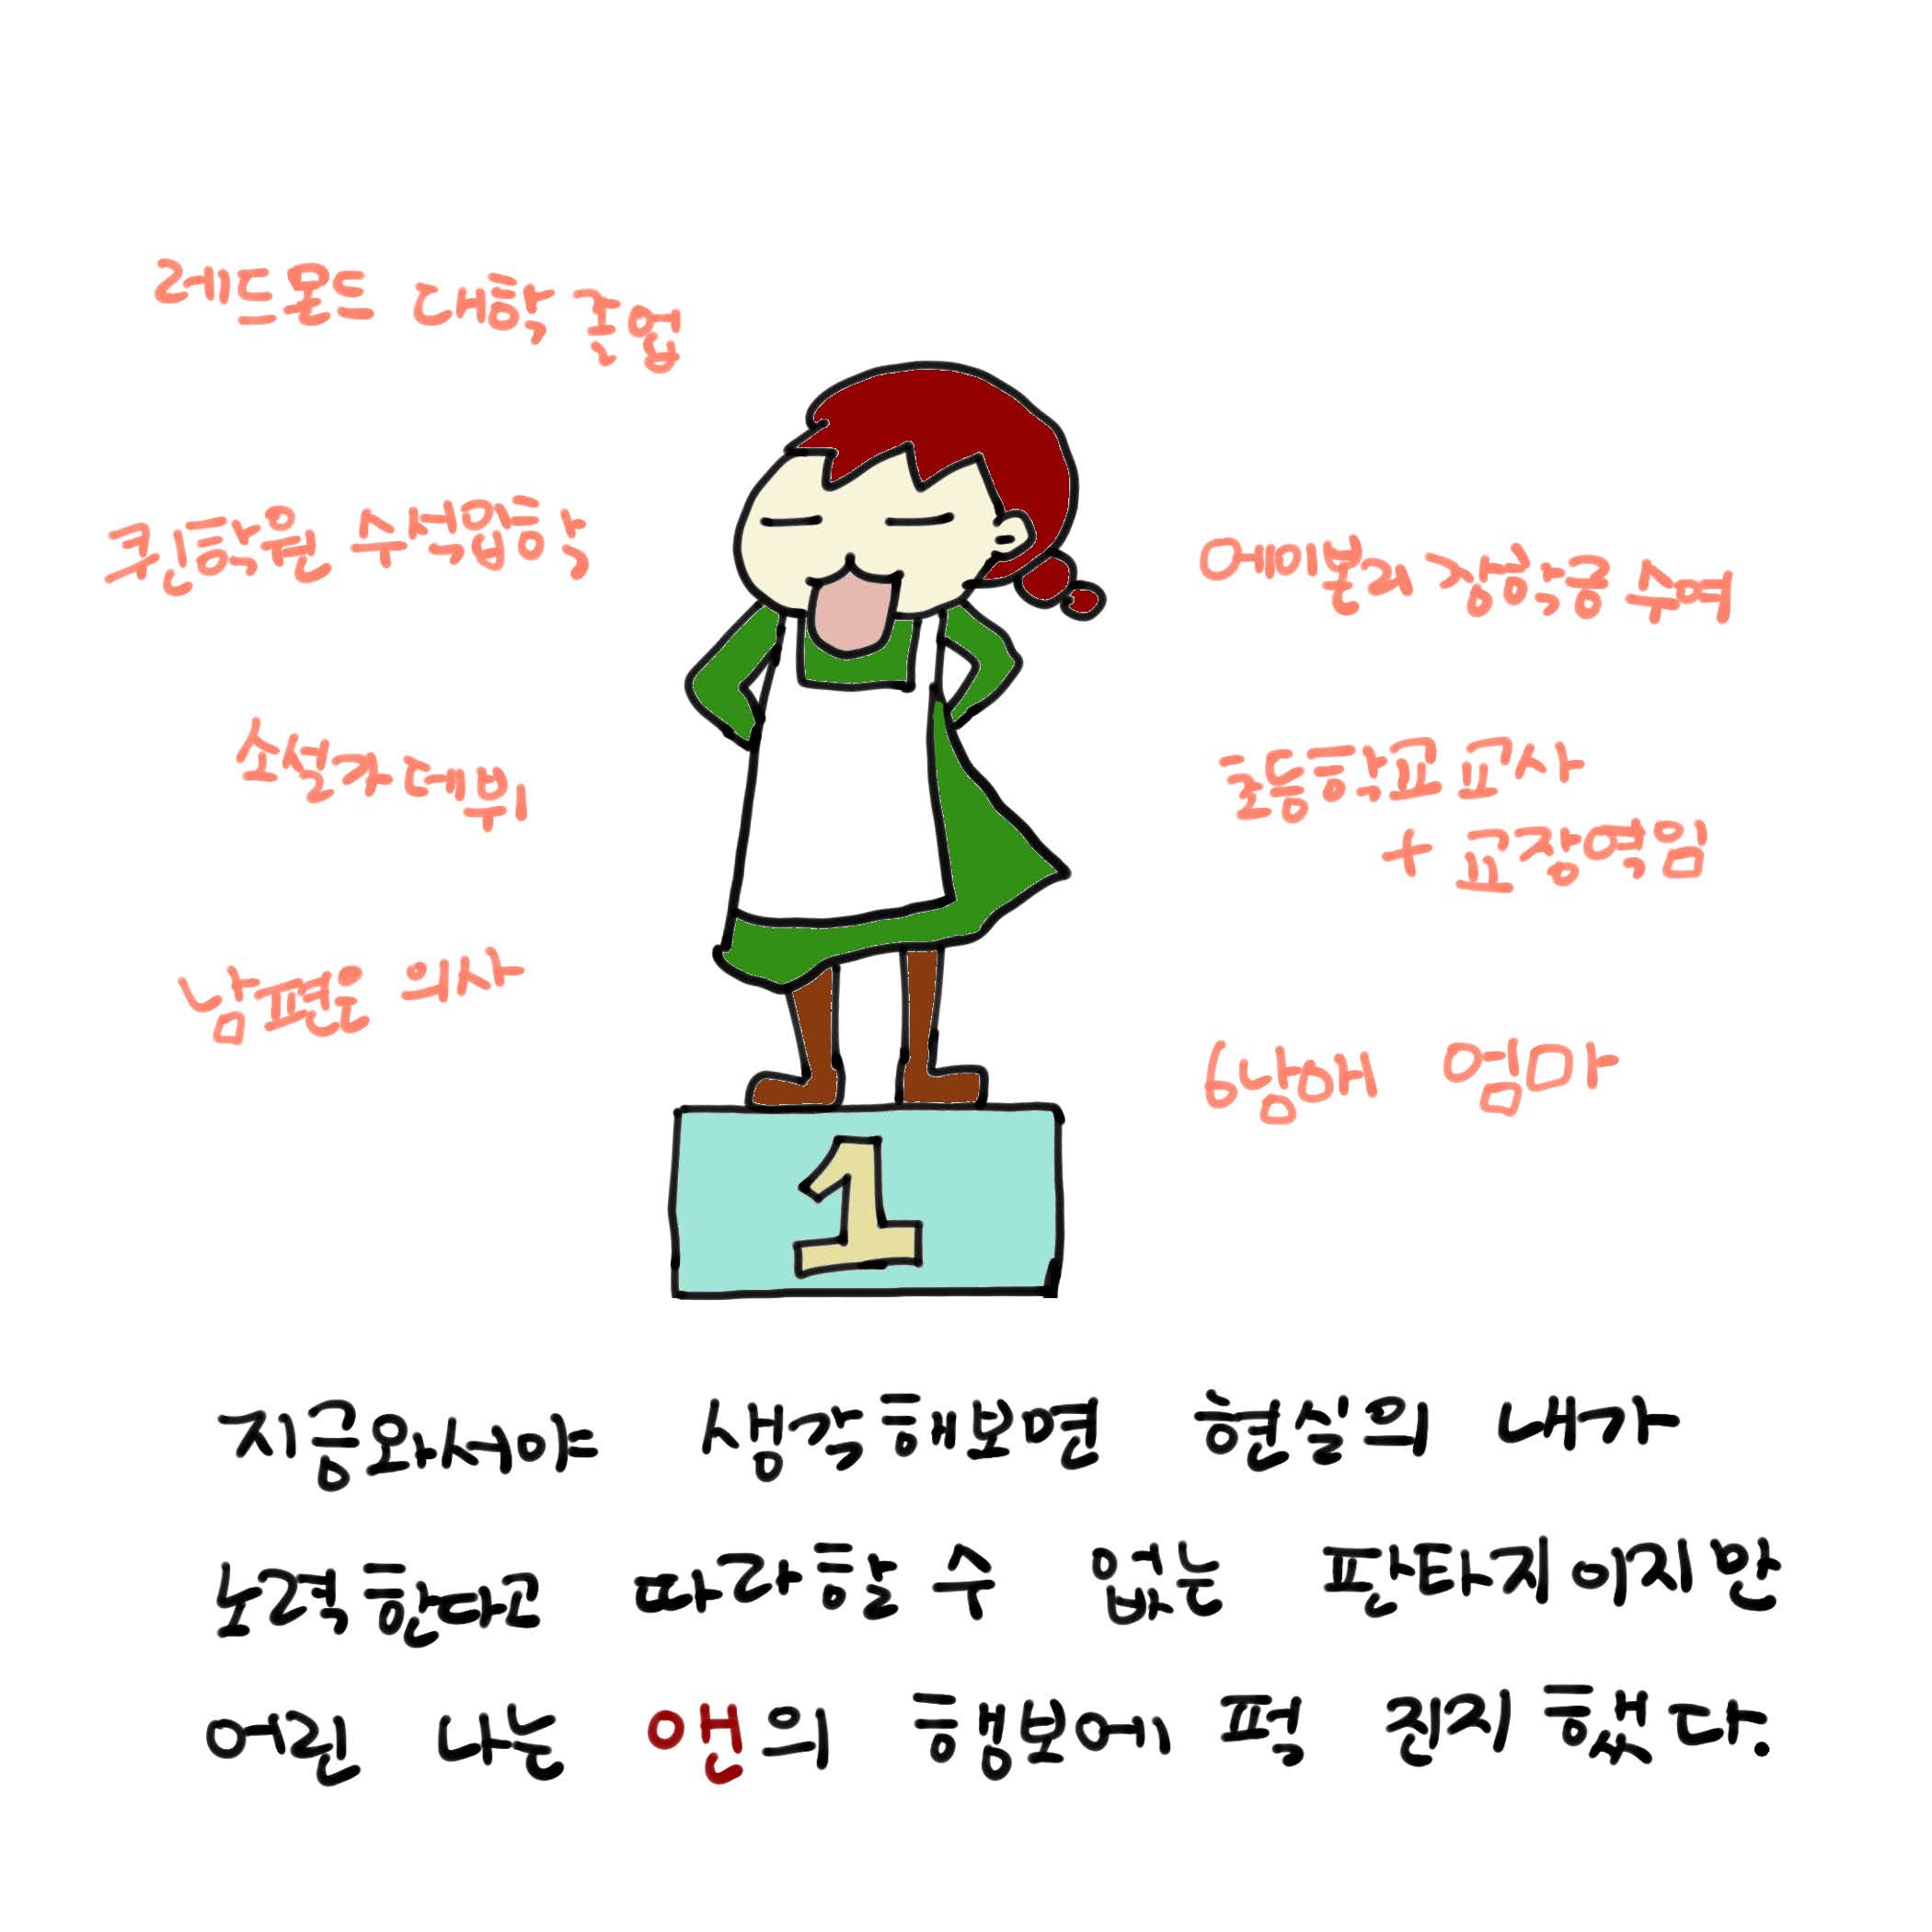 레드몬드 대학 졸업
퀸학원 수석입학
소설가 데뷔
남편은 의사
에이본리 장학금 수여
초등학교 교사
+ 교장역임
6남매 엄마
1
지금와서야 생각해보면 현실의 내가
노력한다고 따라할 수 없는 판타지이지만
어린 나는 앤의 행보에 퍽 진지했다.